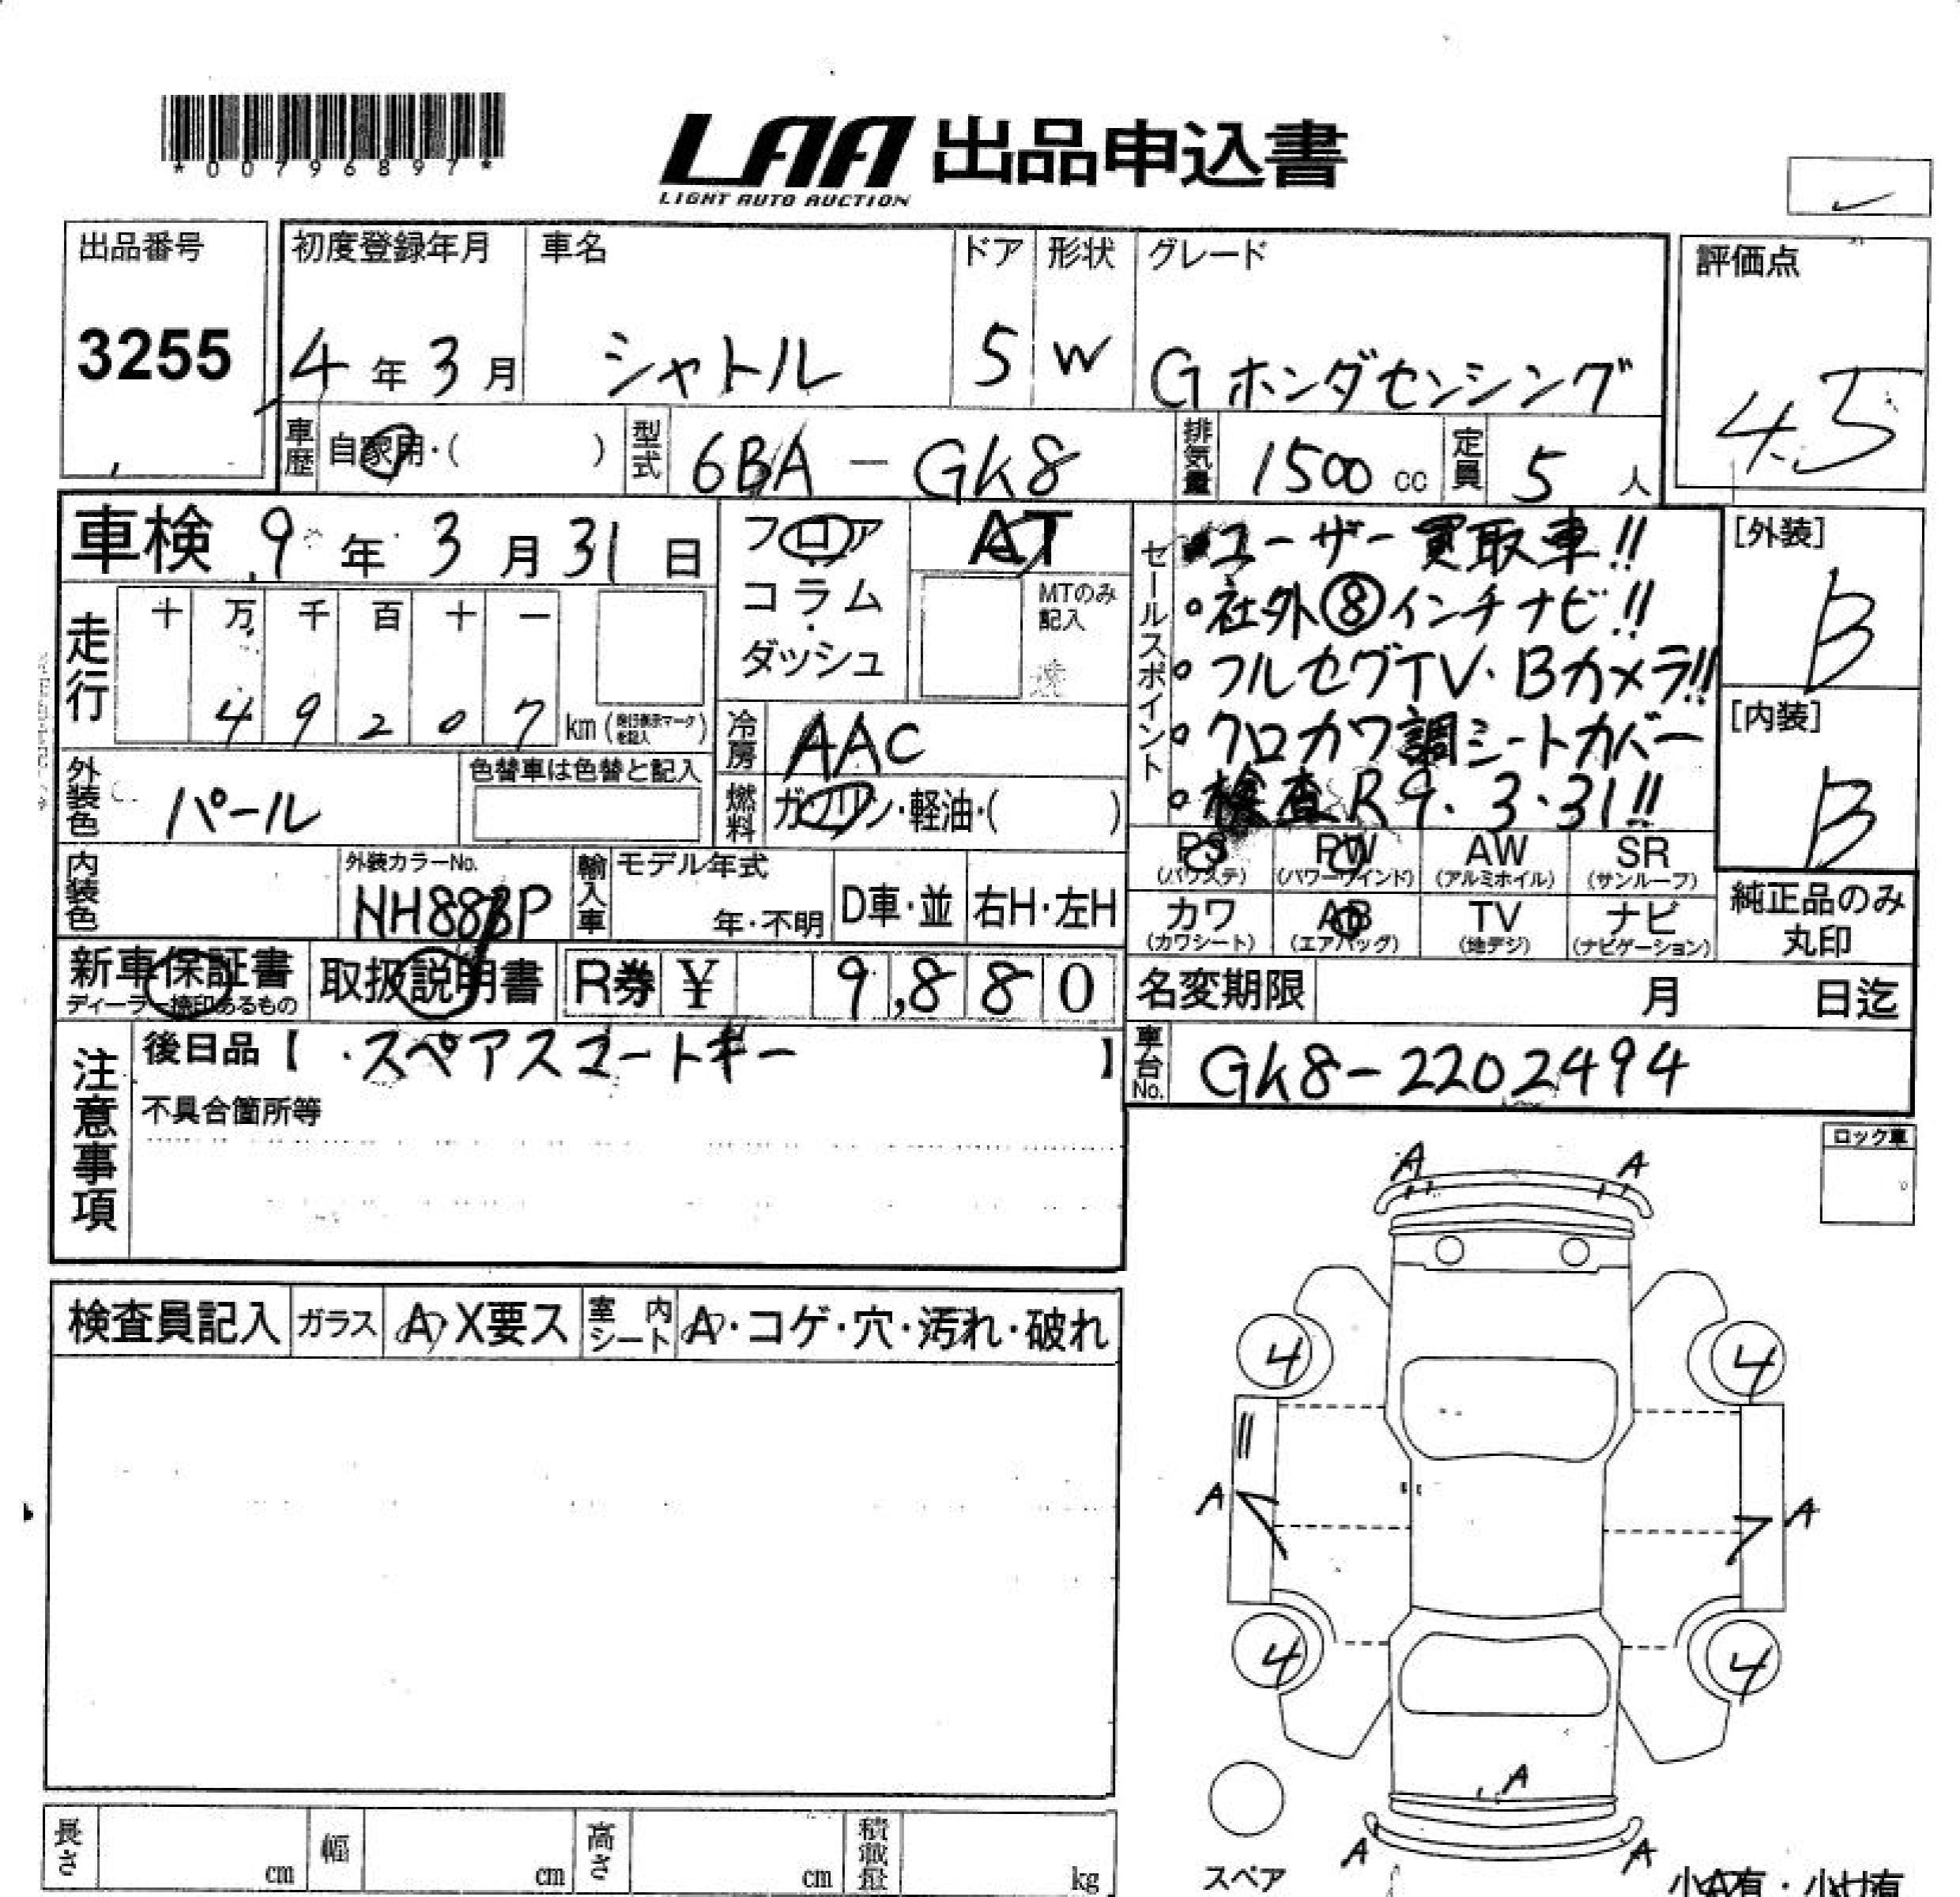 *00796897*
LAA 出品申込書
LIGHT AUTO AUCTION
出品番号
3255
初度登録年月
4年3月
車名
シャトル
ドア
5
形状
W
グレード
Gホンダセンシング
評価点
4.5
車歴
自家用・( )
型式
6BA-GK8
排気量
1500cc
定員
5人
車検 9年3月31日
フロア
コラム
・
ダッシュ
AT
MTのみ
記入
走行
十 万 千 百 十 一
4 9 2 0 7 km
冷房
AAC
燃料
ガソリン・軽油・( )
セールスポイント
・ユーザー買取車!!
・社外⑧インチナビ!!
・フルセグTV・Bカメラ!!
・クロカワ調シートカバー
・検査R9.3.31!!
[外装]
B
[内装]
B
外装色
パール
色替車は色替と記入
内装色
外装カラーNo.
輸入車
モデル年式
年・不明
D車・並
右H・左H
PS
(パワステ)
PW
(パワーウインド)
AW
(アルミホイル)
SR
(サンルーフ)
カワ
(カワシート)
AB
(エアバッグ)
TV
(地デジ)
ナビ
(ナビゲーション)
純正品のみ
丸印
新車保証書
ディーラー捺印あるもの
取扱説明書
R券 ¥ 9,880
名変期限
月 日迄
車台No.
GK8-2202494
注意事項
後日品【・スペアスマートキー】
不具合箇所等
ロック車
検査員記入
ガラス
A・X要ス
室内シート
A・コゲ・穴・汚れ・破れ
A A
4 4
A A
4 4
A
A A
スペア
長さ cm
幅 cm
高さ cm
積載量 kg
小A有・小サ有